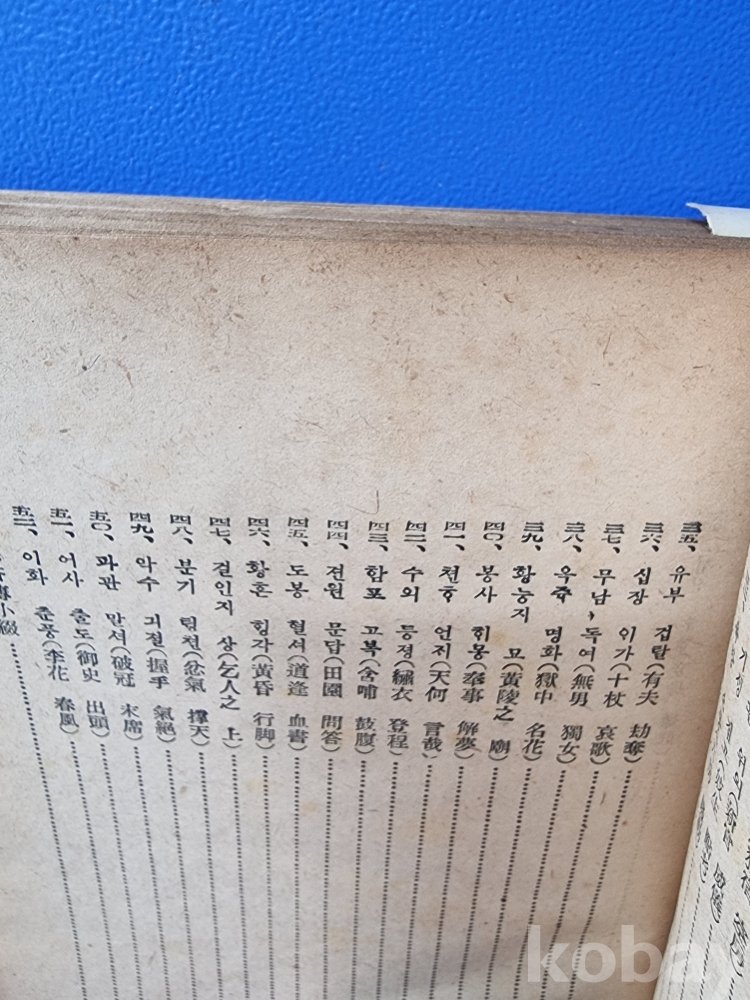 三五、유부 겁탈(有夫 劫奪)
三六、십장 이가(十杖 哀歌)
三七、무남、독여(無男 獨女)
三八、옥즁 명화(獄中 名花)
三九、황능지 묘(黃陵之 廟)
四〇、봉사 히몽(奉事 解夢)
四一、천하 언지(天何 言哉)
四二、수의 등졍(繡衣 登程)
四三、함포 고복(含哺 鼓腹)
四四、젼원 문답(田園 問答)
四五、도봉 혈셔(道逢 血書)
四六、황혼 힝각(黃昏 行脚)
四七、걸인지 상(乞人之 上)
四八、분기 팅천(忿氣 撑天)
四九、악수 긔졀(握手 氣絕)
五〇、파관 말셕(破冠 末席)
五一、어사 출도(御史 出頭)
五二、이화 춘풍(李花 春風)
傳小綴
kobay